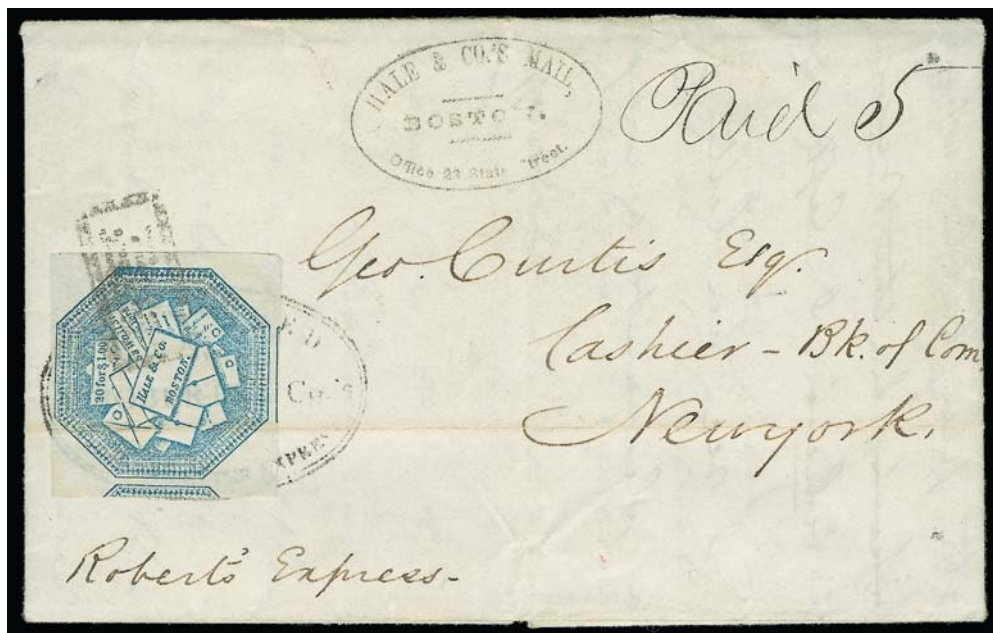 HALE & CO.'S MAIL,
BOSTON.
Office 23 State Street.
Paid 5
Geo. Curtis Esq.
Cashier - Bk. of Com
Newyork.
20 for $1.00
HALE & Co.
BOSTON.
Co.'s
Roberts' Express-